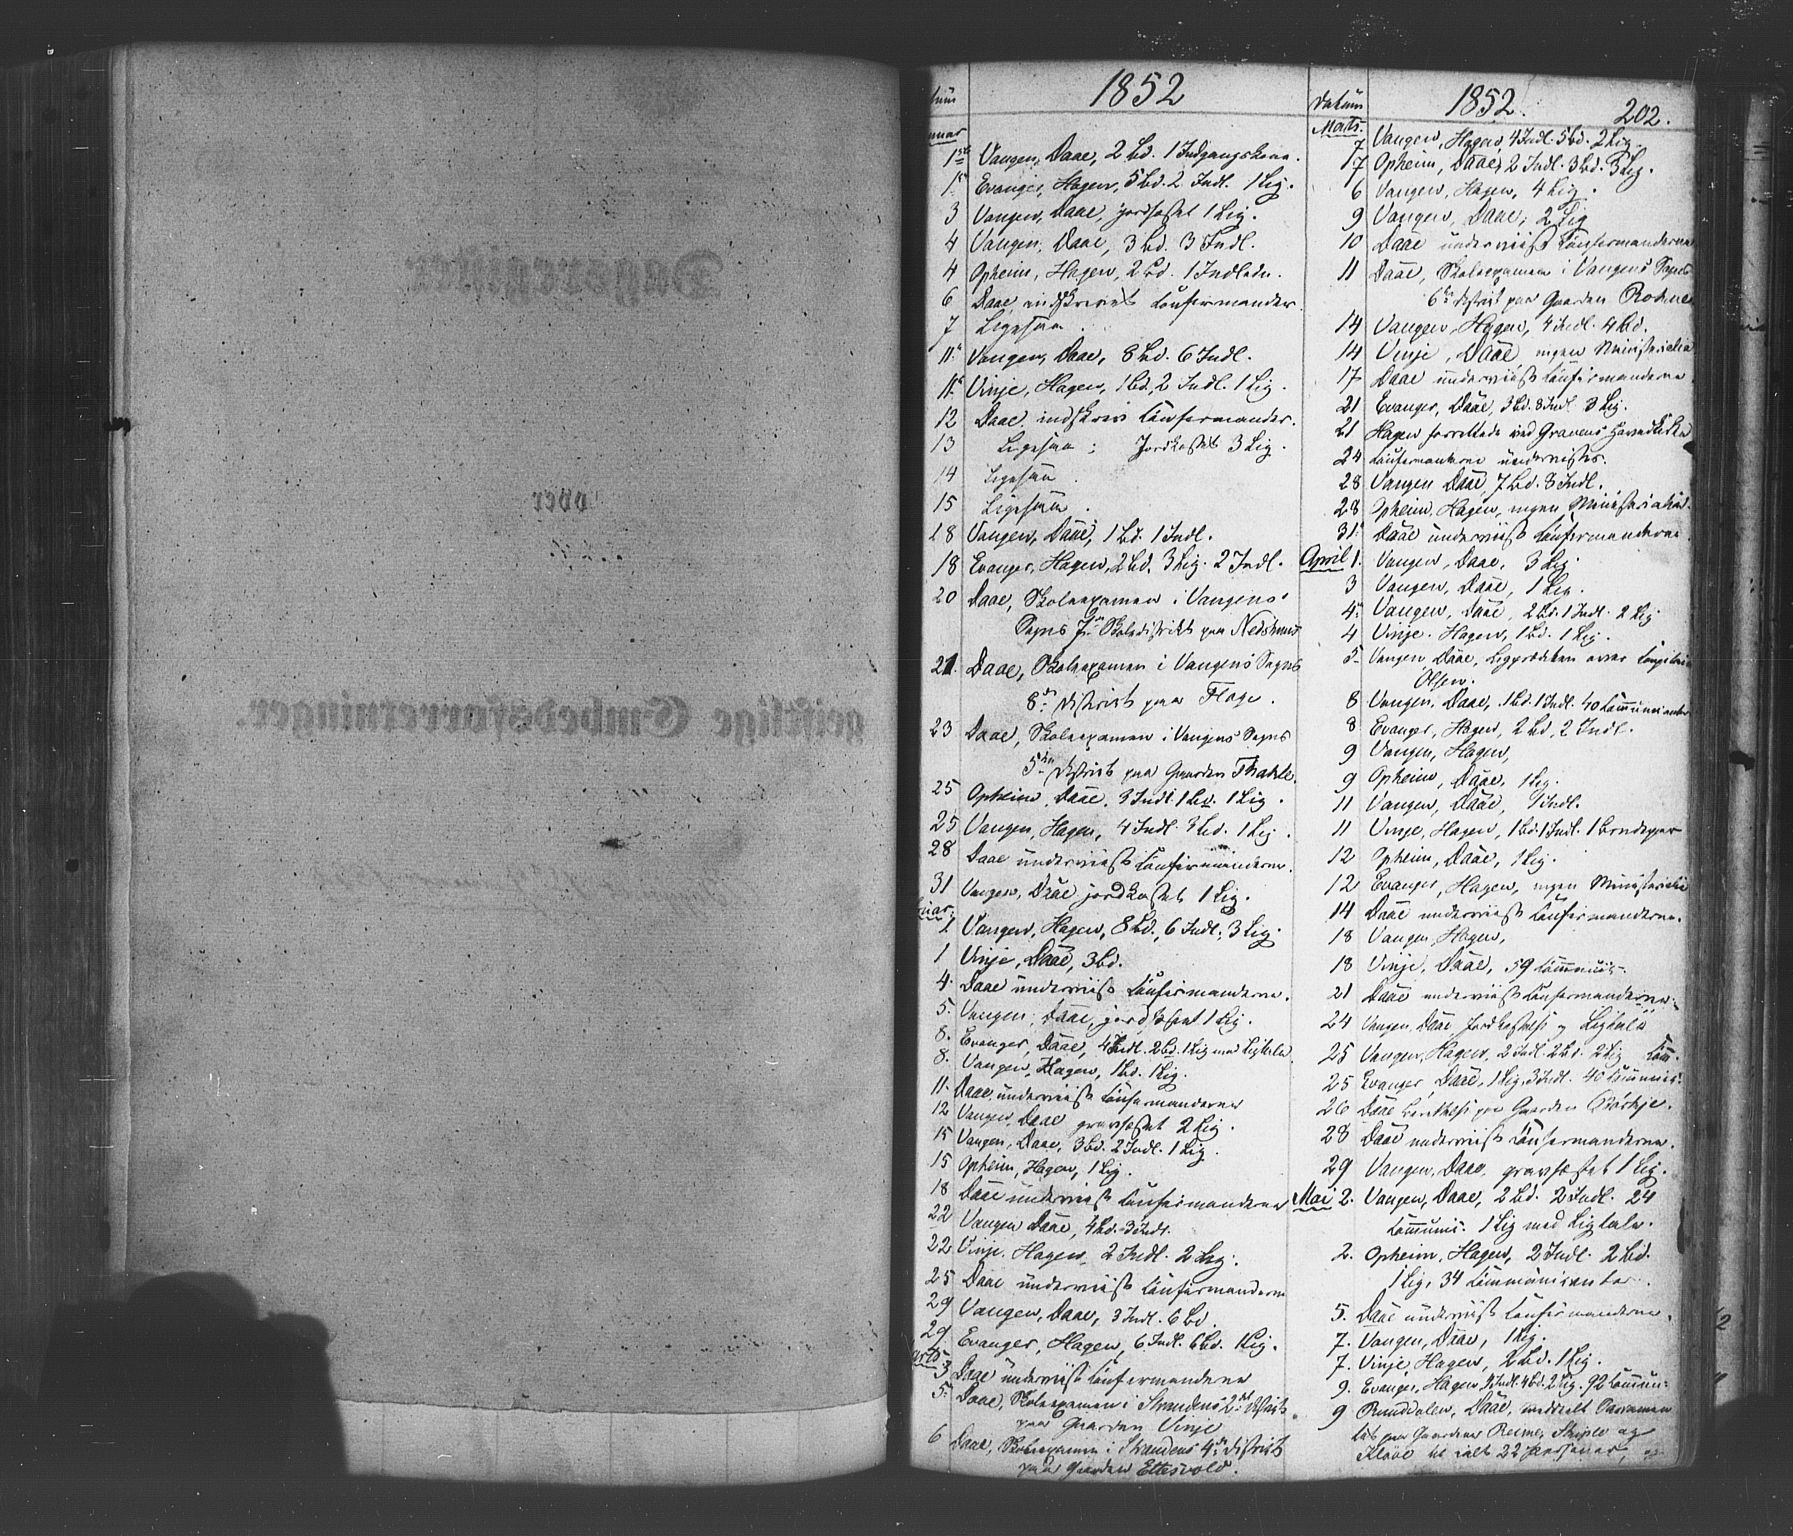 1852
Januar
1ste Vangen, Daae, 2 bd. 1 Indgangskone.
1ste Evanger, Hagen, 5 bd. 2 Indl. 1 Lig.
3 Vangen, Daae, jordfæstet 1 Lig.
4 Vangen, Daae, 3 bd. 3 Indl.
4 Opheim, Hagen, 2 bd. 1 Indledn.
6 Daae, indskrevet Confirmander.
7 Ligesaa.
11. Vangen, Daae, 8 bd. 6 Indl.
11. Vinje, Hagen, 1 bd, 2 Indl. 1 Lig.
12 Daae indskrev Confirmander.
13 Ligesaa; Jordfæstet 3 Lig.
14 Ligesaa.
15 Ligesaa.
18 Vangen, Daae, 1 bd. 1 Indl.
18 Evanger, Hagen, 2 bd. 3 Lig. 2 Indl.
20 Daae, Skoleexamen i Vangens
Sogns 7de Skoledistrikt paa
21. Daae, Skoleexamen i Vangens Sogns
8de District paa Flage.
23 Daae, Skoleexamen i Vangens Sogns
5te District paa Gaarden
25 Opheim, Daae, 3 Indl. 1 bd. 1 Lig.
25 Vangen, Hagen, 4 Indl. 3 bd. 1 Lig.
28 Daae underviist Confirmanderne.
31 Vangen, Daae jordfæstet 1 Lig.
Februar
1 Vangen, Hagen, 8 bd., 6 Indl. 3 Lig.
1 Vinje, Daae, 3 bd.
4. Daae underviist Confirmanderne.
5. Vangen, Daae, jordfæstet 1 Lig.
8. Evanger, Daae, 4 Indl. 2 bd. 1 Lig med Ligtale.
8. Vangen, Hagen, 1 bd. 1 Lig.
11. Daae underviist Confirmanderne
12 Vangen, Daae gravfæstet 2 Lig.
15 Vangen, Daae, 3 bd. 2 Indl. 1 Lig.
15 Opheim, Hagen, 1 Lig.
18 Daae underviist Confirmanderne
22 Vangen Daae, 4 bd. 3 Indl.
22 Vinje. Hagen, 2 Indl. 2 Lig.
25 Daae underviist Confirmanderne
29 Vangen, Daae, 3 Indl. 6 bd.
29 Evanger, Hagen, 6 Indl. 6 bd. 1 Lig.
Marts
3 Daae underviist Confirmanderne
5. Daae, Skoleexamen i Strandens 2det District
paa Gaarden Vinje
6 Daae, Skoleexamen i Strandens 4de District
paa Gaarden
Datum 1852. 202.
Marts.
7 Vangen, Hagen, 4 Indl. 5 bd. 2 Lig.
7 Opheim, Daae, 2 Indl. 3 bd. 3 Lig.
6 Vangen, Hagen, 4 Lig.
9 Vangen, Daae, 2 Lig
10 Daae underviist Confirmanderne
11 Daae, Skoleexamen i Vangens Sogns
6te District paa Gaarden
14 Vangen, Hagen, 4 Indl. 4 bd.
14 Vinje, Daae ingen Ministerialia
17 Daae underviist Confirmanderne.
21 Evanger, Daae, 3 bd. 3 Indl. 3 Lig.
21 Hagen forrettede ved Gravens Hovedkirke
24 Confirmanderne undervistes.
28 Vangen Daae, 7 bd. 8 Indl.
28 Opheim, Hagen, ingen Ministerialia.
31. Daae underviist Confirmanderne.
April 1. Vangen, Daae, 3 Lig.
3 Vangen, Daae, 1 Lig.
4. Vangen, Daae, 2 bd. 1 Indl. 2 Lig
4 Vinje. Hagen, 1 bd. 1 Lig.
5 Vangen, Daae, Ligprædiken over
Olsen.
8 Vangen, Daae, 1 bd. 1 Indl. 40 Communicanter
8 Evanger, Hagen, 2 bd, 2 Indl.
9 Vangen, Hagen,
9 Opheim, Daae, 1 Lig.
11 Vangen, Daae, 1 Indl.
11 Vinje, Hagen, 1 bd. 1 Indl. 1 Brudepar
12 Opheim, Daae, 1 Lig.
12 Evanger, Hagen, ingen Ministerialia
14 Daae underviist Confirmanderne.
18 Vangen, Hagen,
18 Vinje, Daae, 59 Communic.
21 Daae underviist Confirmanderne.
24 Vangen, Daae Jordfæstelse og Ligtale
25 Vangen, Hagen, 2 Indl. 2 bd. 2 Lig Com.
25 Evanger, Daae, 1 Lig, 3 Indl. 40 Communic.
26 Daae paa Gaarden
28 Daae underviist Confirmanderne.
29 Vangen, Daae, gravfæstet 1 Lig.
Mai 2. Vangen, Daae, 2 bd. 2 Indl. 24
Communic. 1 Lig med Ligtale.
2. Opheim, Hagen, 2 Indl. 2 bd.
1 Lig, 34 Communicanter.
5. Daae underviist Confirmanderne.
7. Vangen, Daae, 1 Lig.
7. Vinje, Hagen, 2 bd. 1 Lig.
9. Evanger, Hagen 4 Indl. 4 bd. 2 Lig. 92 Commun.
9 Daae, meddeelt Sacramen
tet paa Gaardene Reime, og
til ialt 22 Personer, og
Dagsregister
over
geistlige Embedsforretninger.